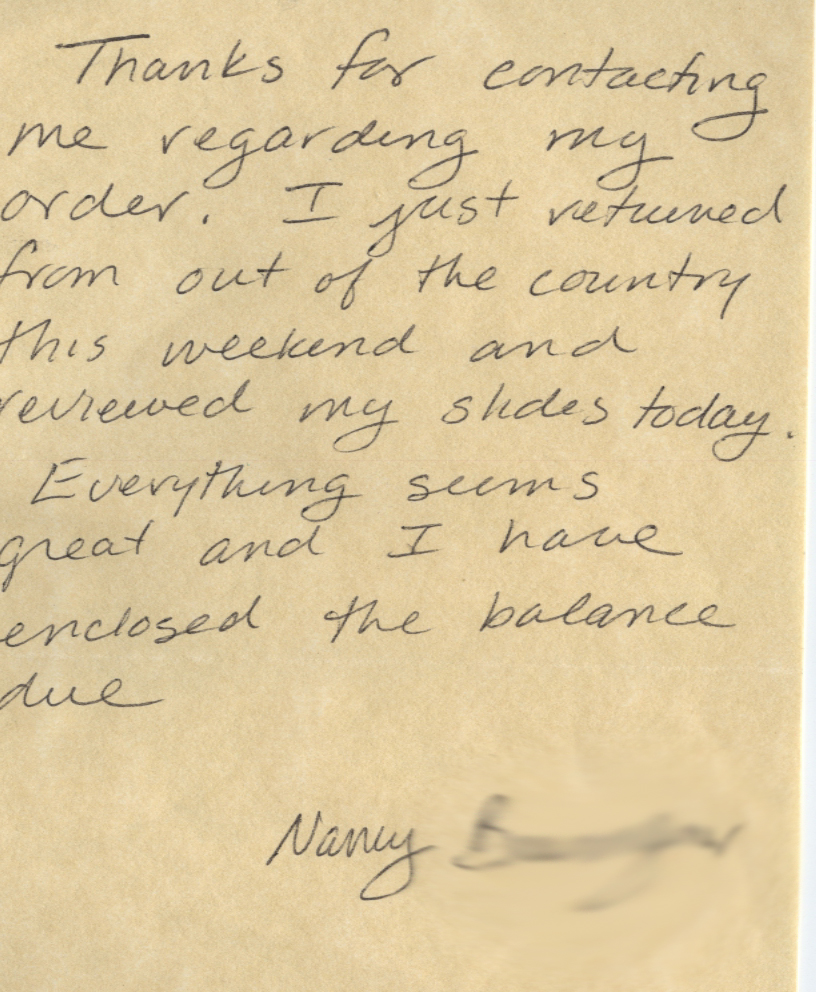 Thanks for contacting
me regarding my
order. I just returned
from out of the country
this weekend and
reviewed my slides today.
Everything seems
great and I have
enclosed the balance
due
Nancy